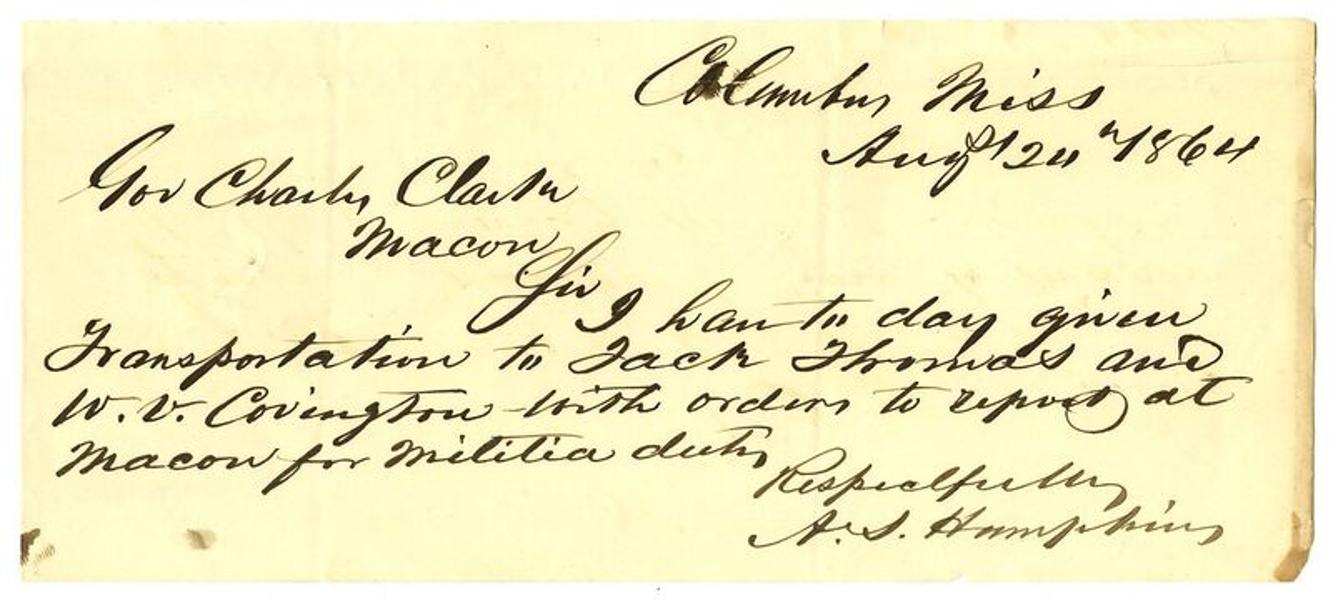 Columbus Miss
Augst 24th 1864
Gov Charles Clark
Macon
Sir
I have to day given
Transportation to Jack Thomas and
W. V. Covington with orders to report at
Macon for Militia duty
Respectfully
A. S. Humphries